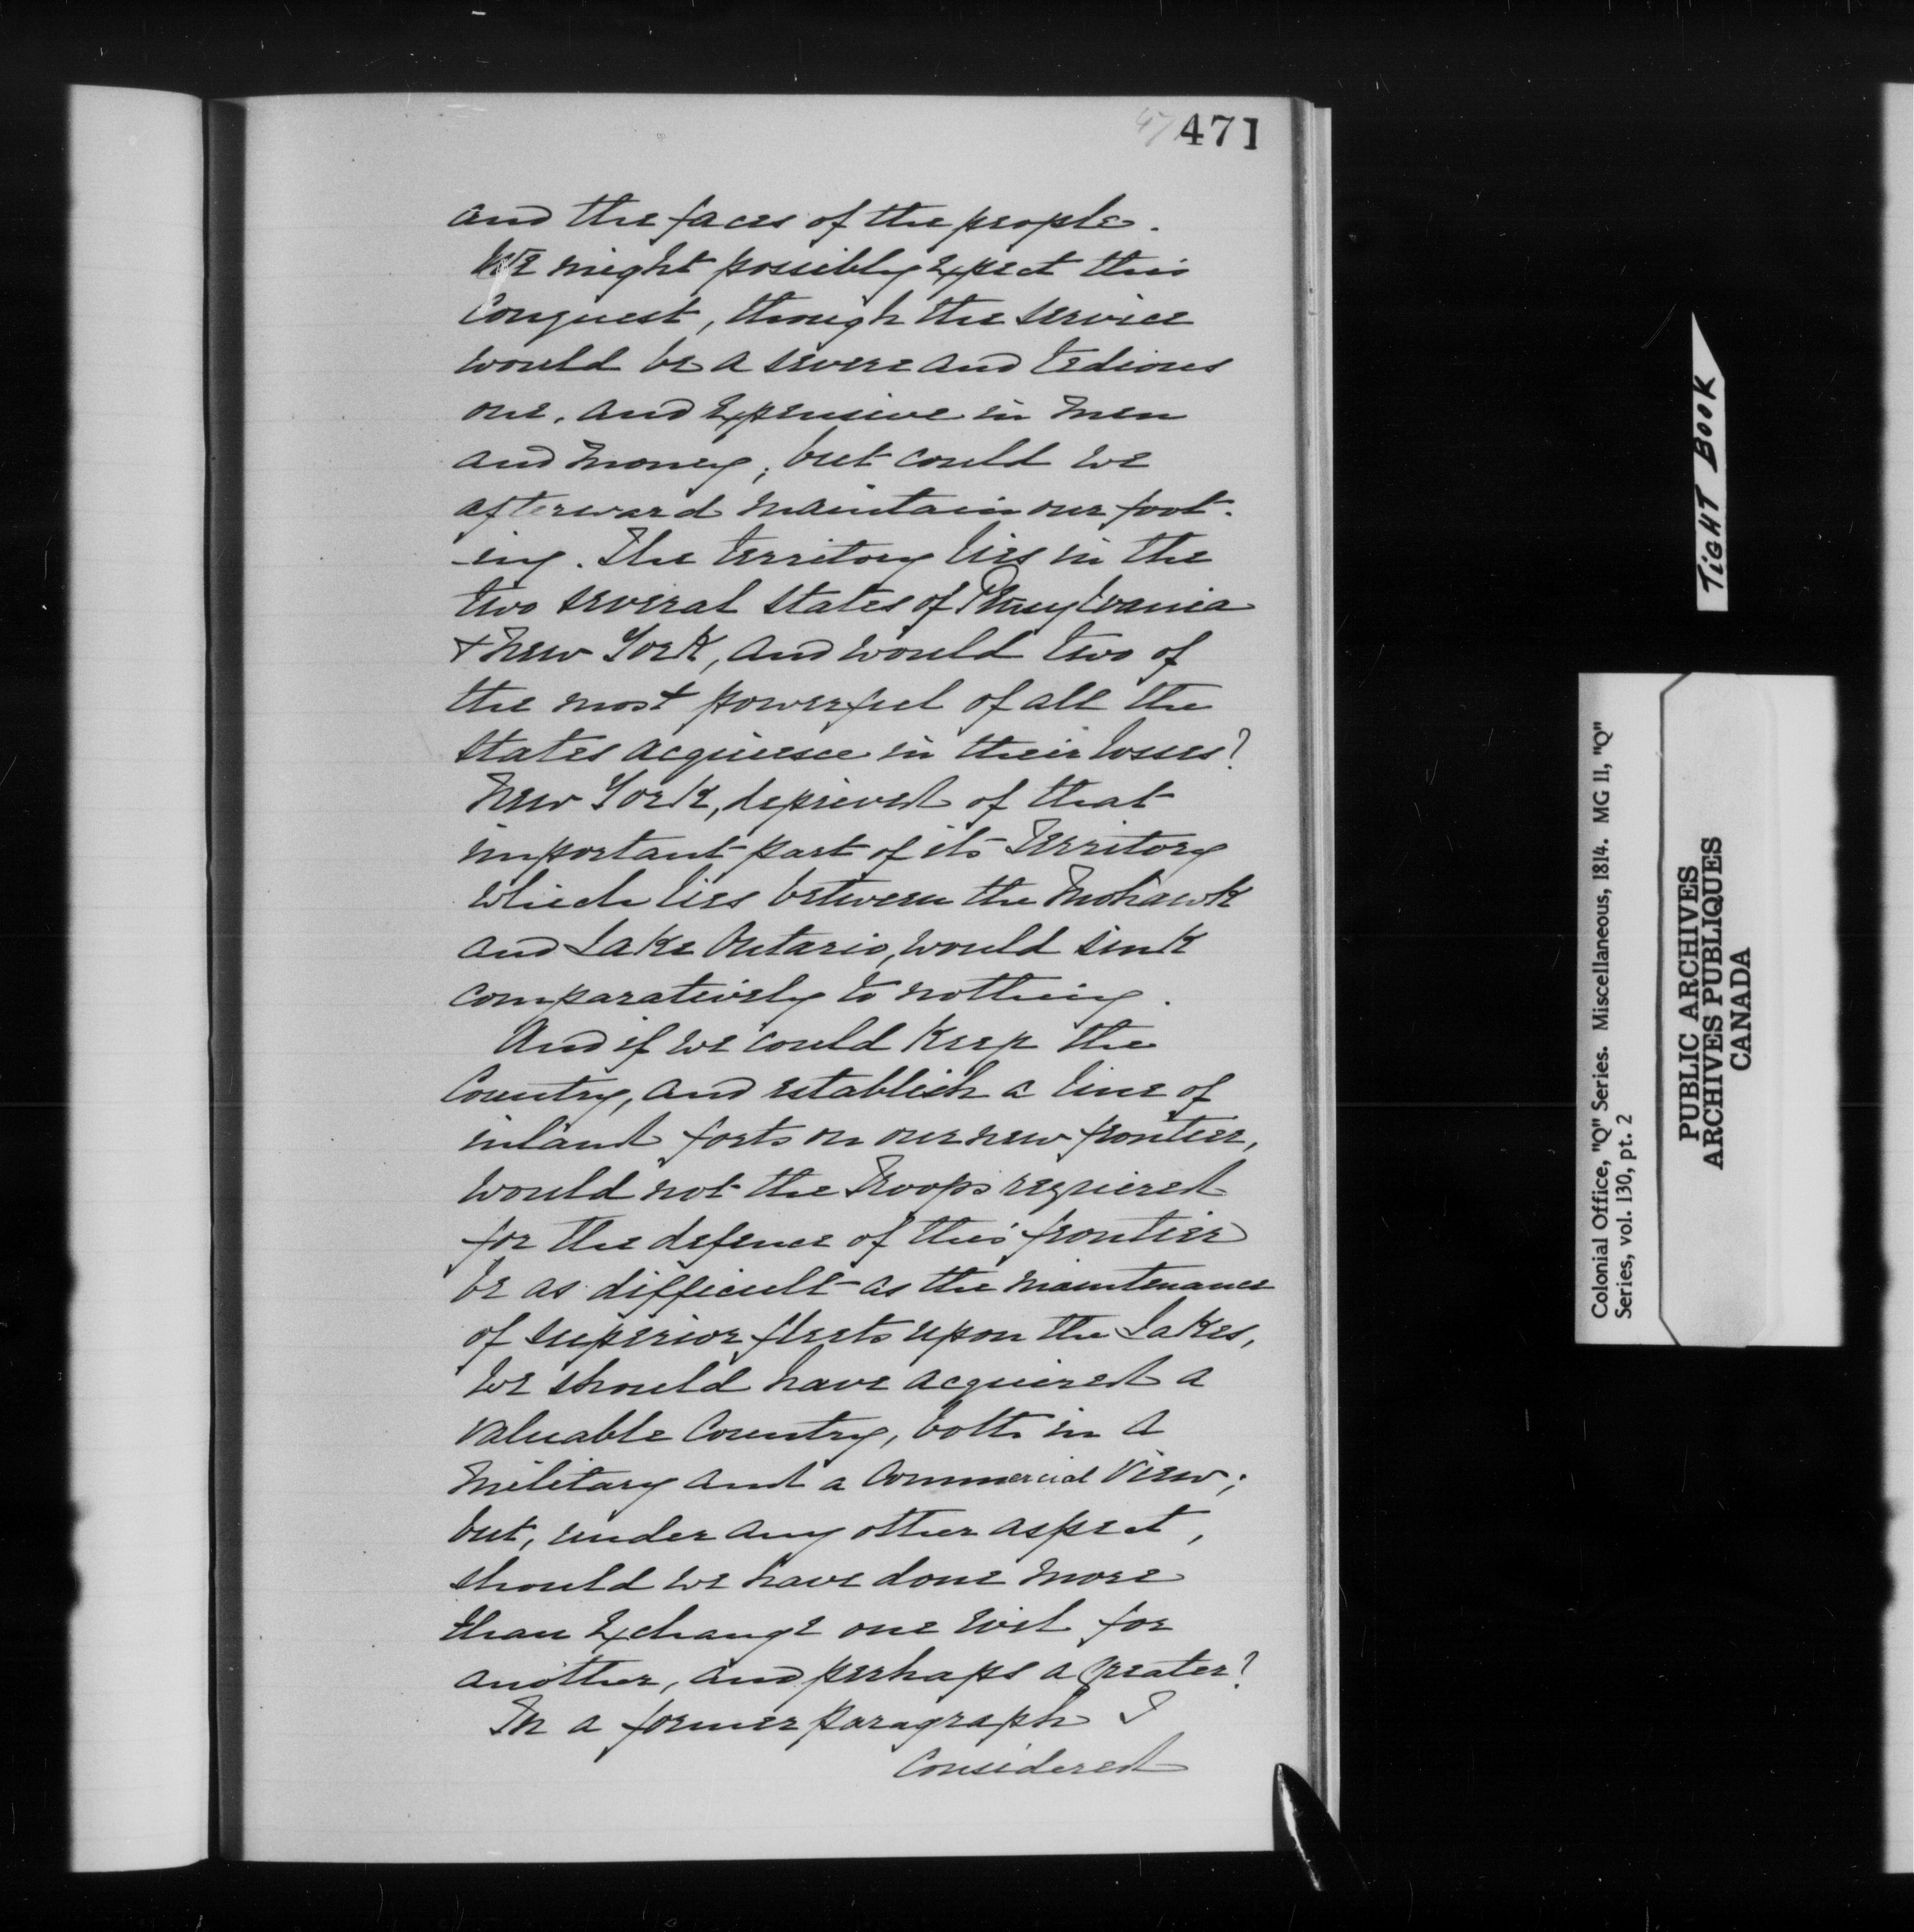 47 471
and the faces of the people.
We might possibly expect this
Conquest, though the service
would be a severe and tedious
one, and expensive in men
and money; but could we
afterward maintain our foot-
-ing. The territory lies in the
two several states of Pennsylvania
& New York, and would two of
the most powerful of all the
States acquiesce in their losses?
New York, deprived of that
important part of its Territory
which lies between the Mohawk
and Lake Ontario, would sink
comparatively to nothing.
And if we could keep the
Country, and establish a line of
inland forts on our new frontier,
would not the Troops required
for the defence of this frontier
be as difficult as the maintenance
of superior fleets upon the Lakes,
We should have acquired a
valuable Country, both in a
Military and a Commercial View;
but, under any other aspect,
should we have done more
than exchange one evil for
another, and perhaps a greater?
In a former paragraph I
Considered
TIGHT BOOK
Colonial Office, "Q" Series. Miscellaneous, 1814. MG 11, "Q"
Series, vol. 130, pt. 2
PUBLIC ARCHIVES
ARCHIVES PUBLIQUES
CANADA